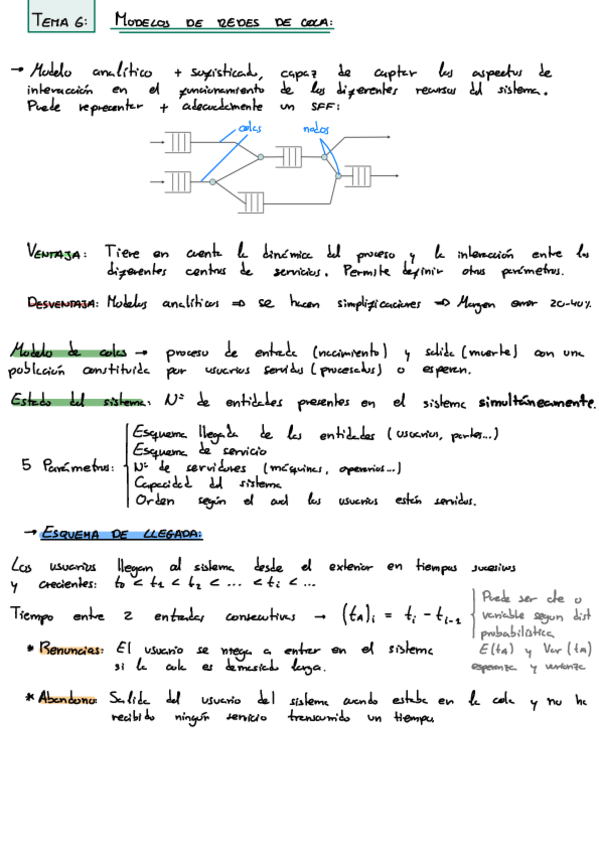 TEMA 6: MODELOS DE REDES DE COLA:
→ Modelo analítico + sofisticado, capaz de captar los aspectos de
interacción en el funcionamiento de los diferentes recursos del sistema.
Puede representar + adecuadamente un SFF:
colas nodos
VENTAJA: Tiene en cuenta la dinámica del proceso y la interacción entre los
diferentes centros de servicios. Permite definir otros parámetros.
DESVENTAJA: Modelos analíticos ⇒ se hacen simplificaciones ⇒ Margen error 20-40%
Modelo de colas → proceso de entrada (nacimiento) y salida (muerte) con una
población constituida por usuarios servidos (procesados) o esperan.
Estado del sistema: Nº de entidades presentes en el sistema simultáneamente.
5 Parámetros:
Esquema llegada de las entidades (usuarios, partes...)
Esquema de servicio
Nº de servidores (máquinas, operarios...)
Capacidad del sistema
Orden según el cual los usuarios están servidos.
→ ESQUEMA DE LLEGADA:
Los usuarios llegan al sistema desde el exterior en tiempos sucesivos
y crecientes: t0 < t1 < t2 < ... < ti < ...
Tiempo entre 2 entradas consecutivas → (tA)i = ti - ti-1
Puede ser cte o
variable segun dist
probabilística
E(tA) y Var(tA)
esperanza y varianza
* Renuncias: El usuario se niega a entrar en el sistema
si la cola es demasiado larga.
* Abandono: Salida del usuario del sistema cuando estaba en la cola y no ha
recibido ningún servicio transcurrido un tiempo